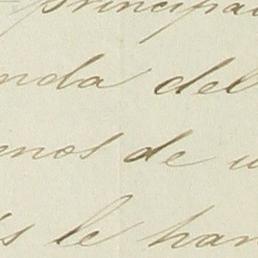 principal
nda del
enos de u
is le han